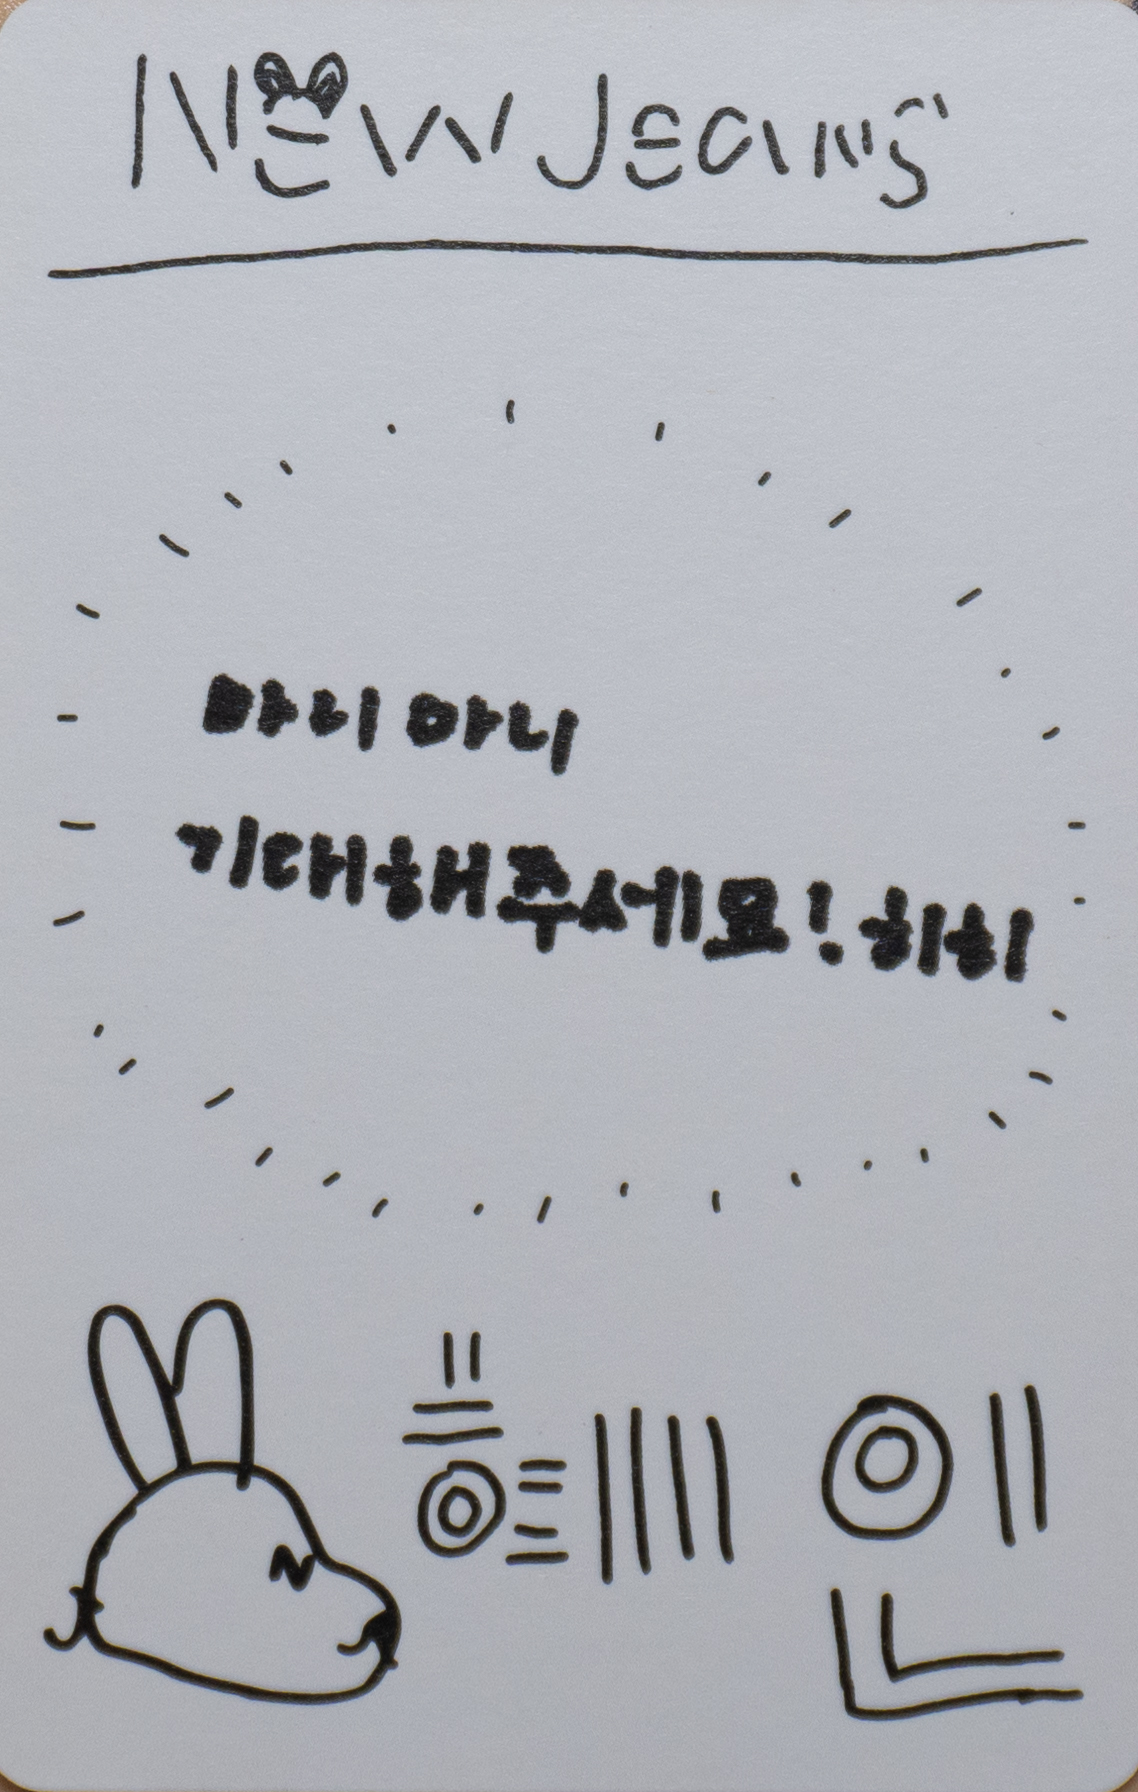 NEW JEANS
마니 마니
기대해주세요! 히히
혜인